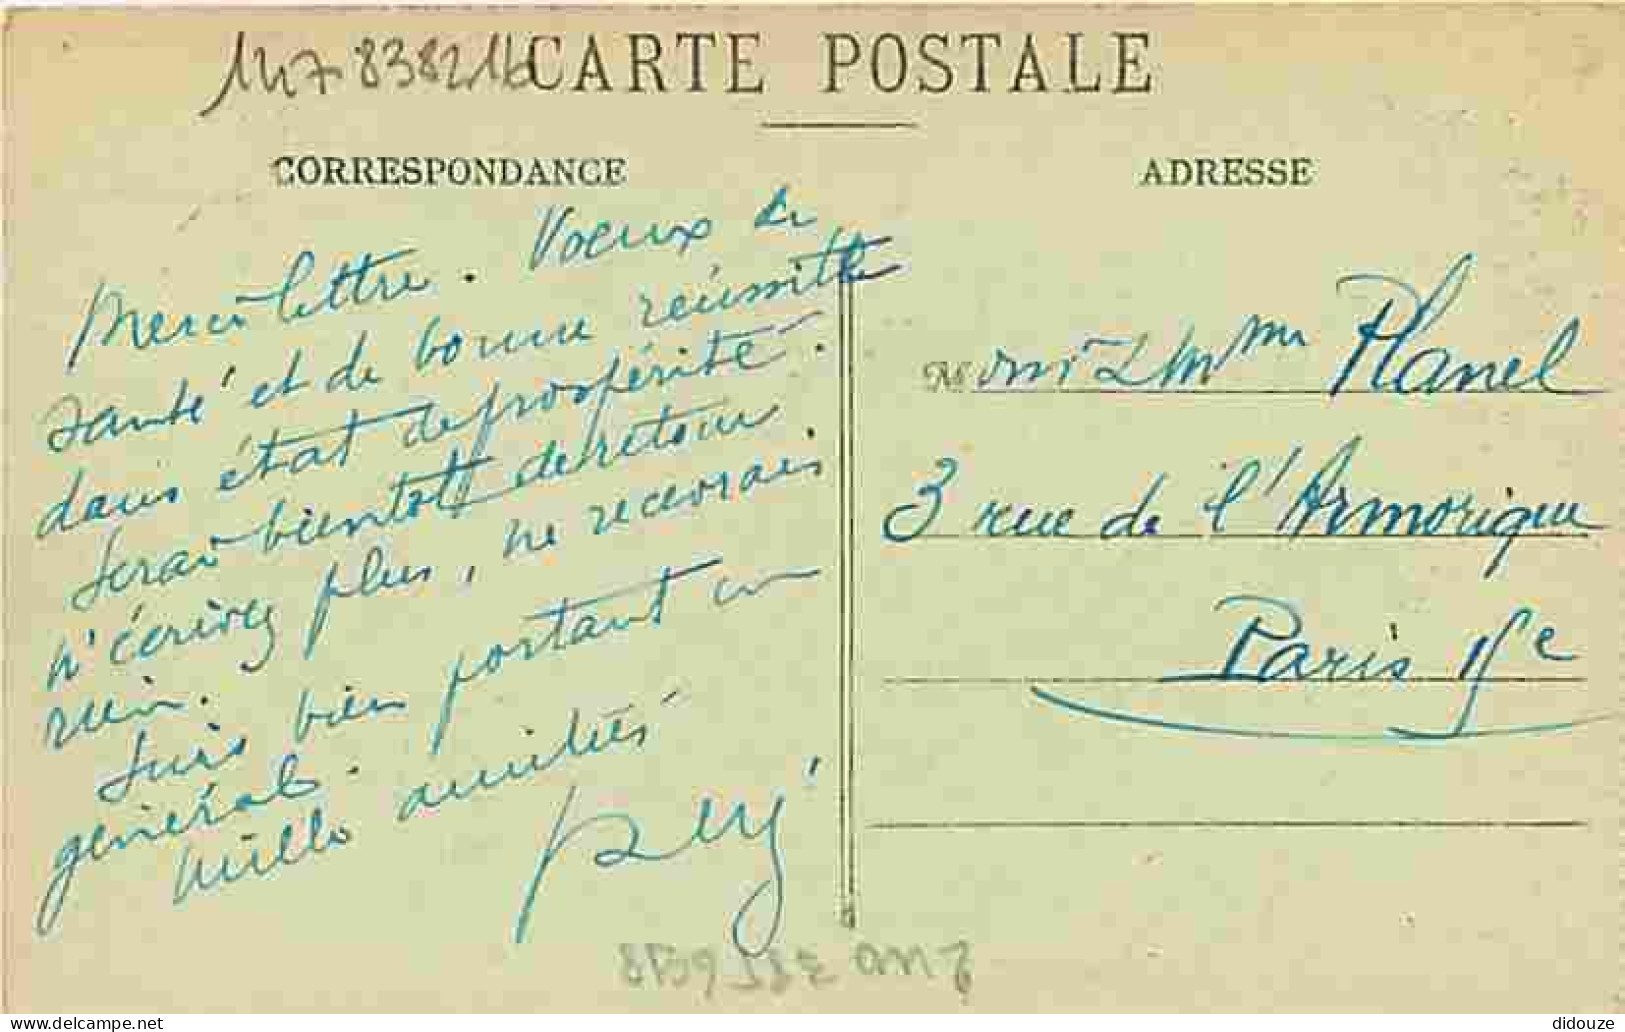 CARTE POSTALE
CORRESPONDANCE
Merci lettre. Voeux de
santé et de bonne réussite
dans état de prospérité.
Serai bientôt de retour
n'écrivez plus, ne recevrais
rien.
Suis bien portant en
général.
Mille amitiés
ADRESSE
Planel
3 rue de l'Armorique
Paris 15e
didouze